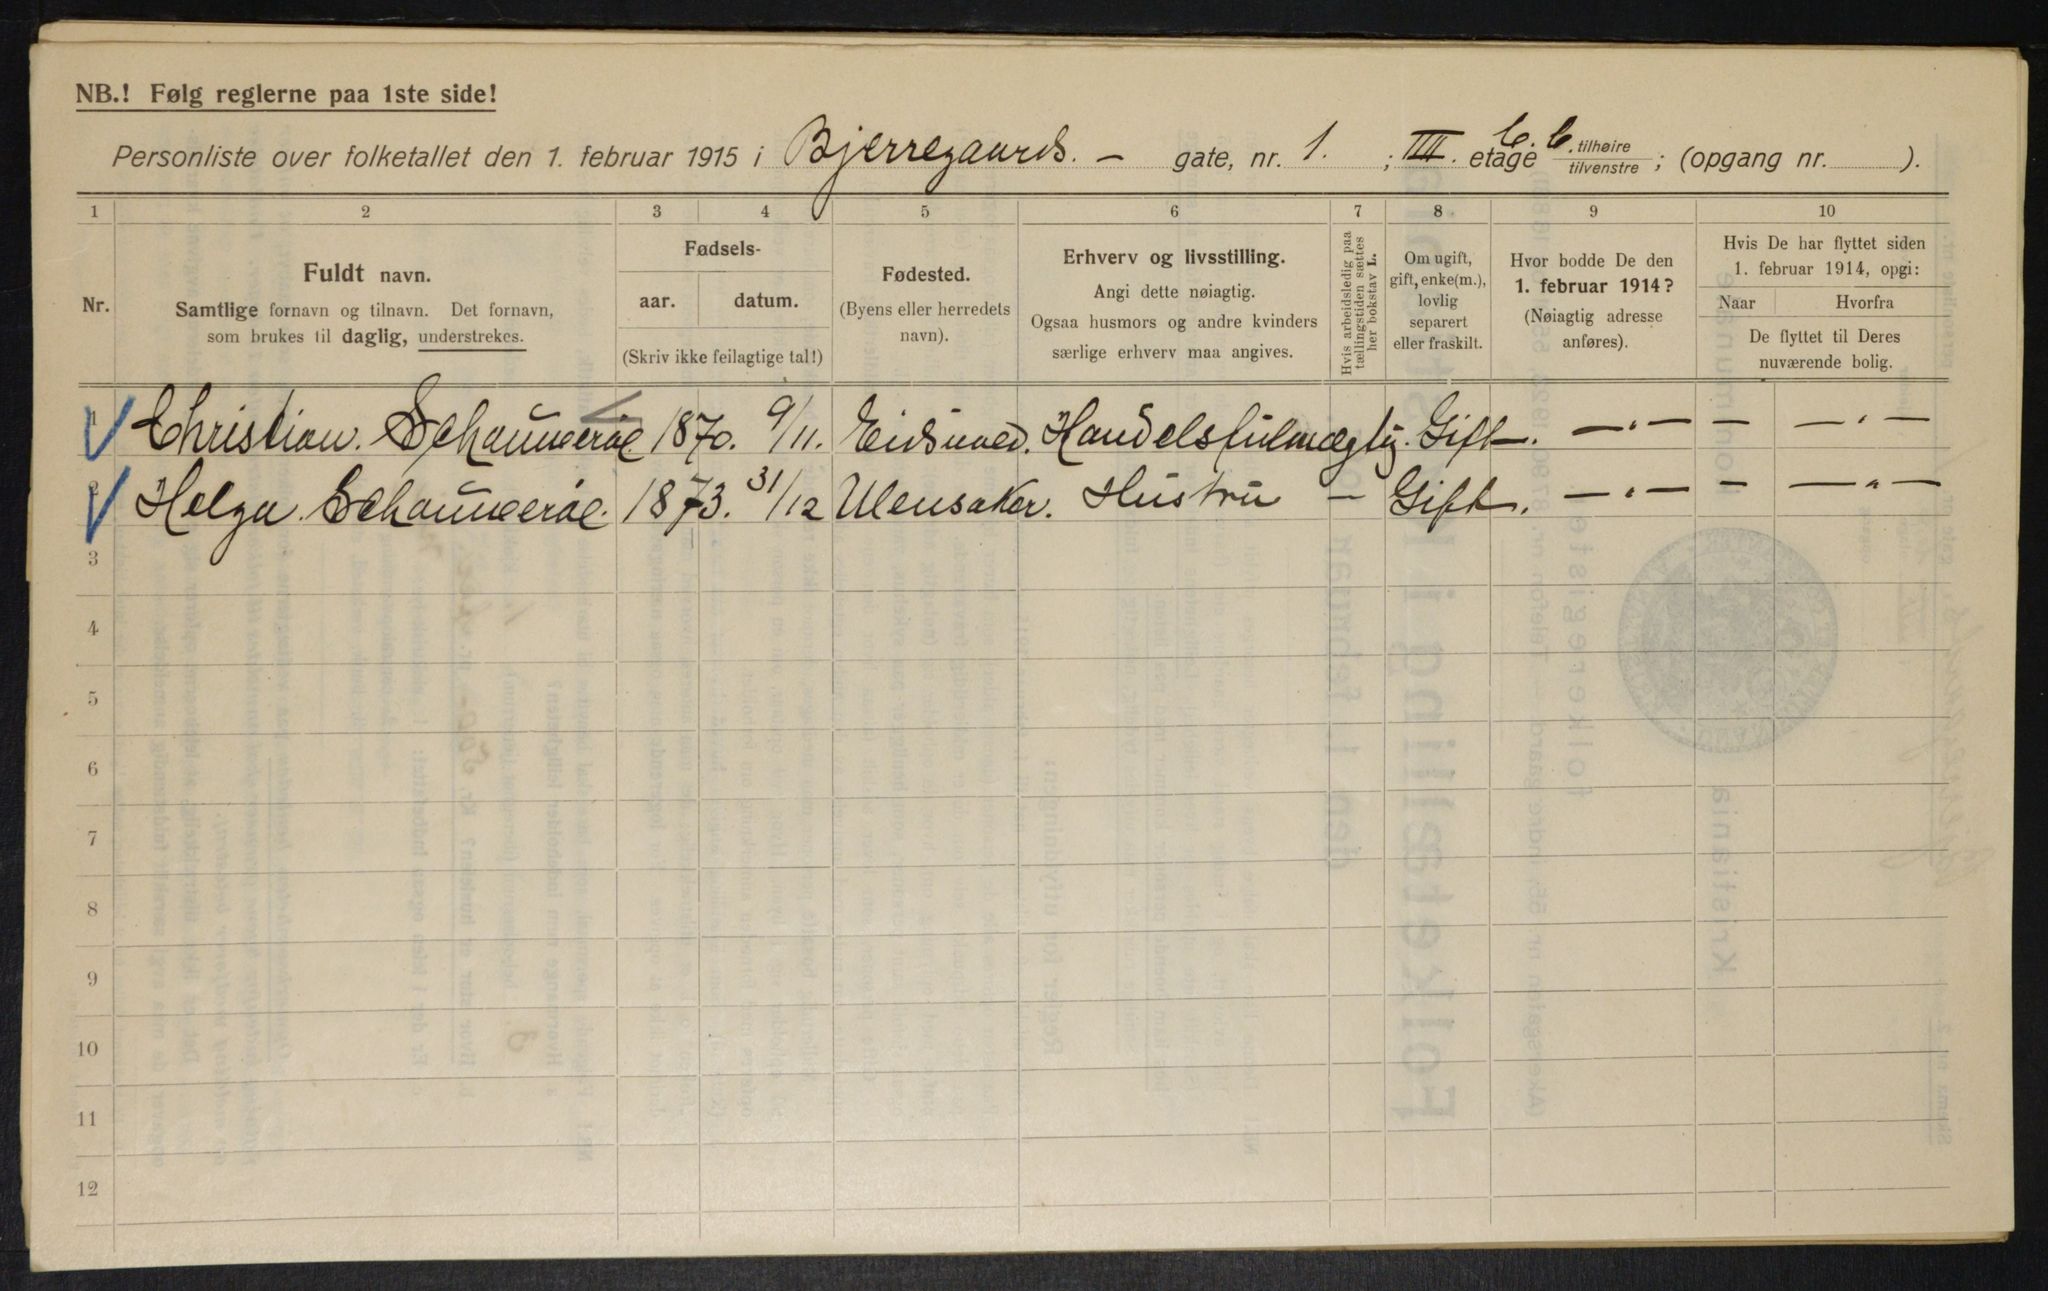 NB.! Følg reglerne paa 1ste side!
Personliste over folketallet den 1. februar 1915 i Bjerregaards. — gate, nr. 1. ; IIII. etage C. tilhøire / tilvenstre ; (opgang nr. ).
1 2 3 4 5 6 7 8 9 10
Nr.
Fuldt navn.
Samtlige fornavn og tilnavn. Det fornavn,
som brukes til daglig, understrekes.
Fødsels-
aar. datum.
(Skriv ikke feilagtige tal!)
Fødested.
(Byens eller herredets
navn).
Erhverv og livsstilling.
Angi dette nøiagtig.
Ogsaa husmors og andre kvinders
særlige erhverv maa angives.
Hvis arbeidsledig paa
tællingstiden sættes
her bokstav L.
Om ugift,
gift, enke(m.),
lovlig
separert
eller fraskilt.
Hvor bodde De den
1. februar 1914?
(Nøiagtig adresse
anføres).
Hvis De har flyttet siden
1. februar 1914, opgi:
Naar Hvorfra
De flyttet til Deres
nuværende bolig.
1 Christian. 1870. 9/11. Eidsvold. Handelsfulmægtig. Gift. —"— — —"—
2 Helga 1873. 31/12 Ulensaker. Hustru — Gift. —"— — —"—
3
4
5
6
7
8
9
10
11
12